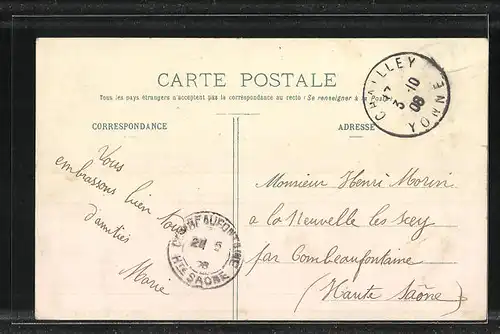 CARTE POSTALE
Tous les pays étrangers n'acceptent pas la correspondance au recto (Se renseigner à la Poste)
CORRESPONDANCE
ADRESSE
CHAILLEY
3 10
08
YONNE
Vous
embrassons bien
d'amitiés
Marie
COMBEAUFONTAINE
HTE SAÔNE
Monsieur Henri Morin
a la Neuvelle les Scey
par Combeaufontaine
(Haute Saône)